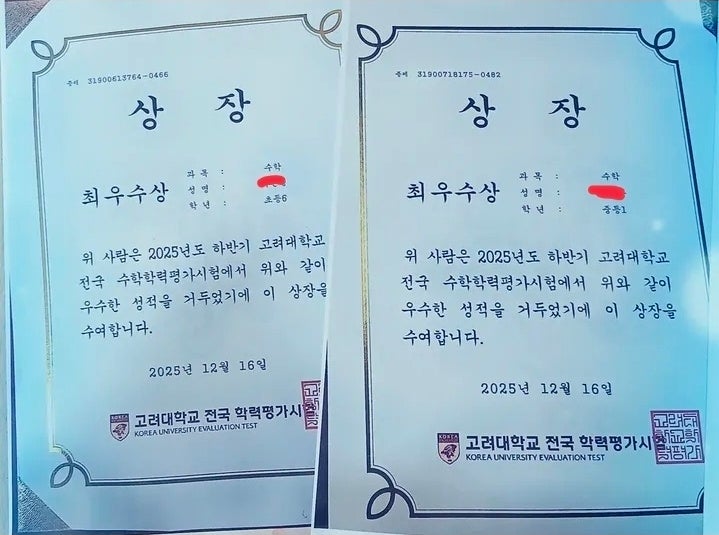 증제 31900613764-0466
상 장
최우수상
과 목 : 수학
성 명 :
학 년 : 초등6
위 사람은 2025년도 하반기 고려대학교
전국 수학학력평가시험에서 위와 같이
우수한 성적을 거두었기에 이 상장을
수여합니다.
2025년 12월 16일
KOREA
고려대학교 전국 학력평가시험
KOREA UNIVERSITY EVALUATION TEST
증제 31900718175-0482
상 장
최우수상
과 목 : 수학
성 명 :
학 년 : 중등1
위 사람은 2025년도 하반기 고려대학교
전국 수학학력평가시험에서 위와 같이
우수한 성적을 거두었기에 이 상장을
수여합니다.
2025년 12월 16일
KOREA
고려대학교 전국 학력평가시험
KOREA UNIVERSITY EVALUATION TEST